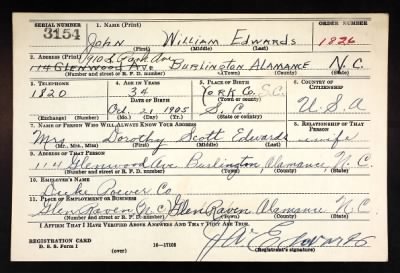 SERIAL NUMBER 1. NAME (Print) ORDER NUMBER
3154 John William Edwards 1826
(First) (Middle) (Last)
2. ADDRESS (Print) 910 S Park Ave
114 GLENWOOD AVE BURLINGTON ALAMANCE N.C.
(Number and street or R. F. D. number) (Town) (County) (State)
3. TELEPHONE 4. AGE IN YEARS 5. PLACE OF BIRTH 6. COUNTRY OF CITIZENSHIP
1820 34 York Co. S.C.
DATE OF BIRTH (Town or county)
Oct. 21 1905 S.C U.S.A
(Exchange) (Number) (Mo.) (Day) (Yr.) (State or country)
7. NAME OF PERSON WHO WILL ALWAYS KNOW YOUR ADDRESS 8. RELATIONSHIP OF THAT PERSON
Mrs Dorothy Scott Edwards wife
(Mr., Mrs., Miss) (First) (Middle) (Last)
9. ADDRESS OF THAT PERSON
114 Glenwood Ave Burlington, Alamance N.C.
(Number and street or R. F. D. number) (Town) (County) (State)
10. EMPLOYER'S NAME
Duke Power Co
11. PLACE OF EMPLOYMENT OR BUSINESS
Glen Raven N.C. Glen Raven Alamance N.C.
(Number and street or R. F. D. number) (Town) (County) (State)
I AFFIRM THAT I HAVE VERIFIED ABOVE ANSWERS AND THAT THEY ARE TRUE.
REGISTRATION CARD J W Edwards
D. S. S. Form 1 (over) 16-17105 (Registrant's signature)